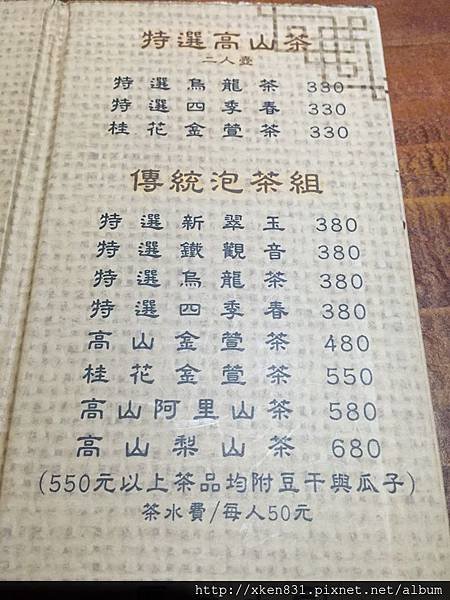 特選高山茶
二人壺
特選烏龍茶 330
特選四季春 330
桂花金萱茶 330
傳統泡茶組
特選新翠玉 380
特選鐵觀音 380
特選烏龍茶 380
特選四季春 380
高山金萱茶 480
桂花金萱茶 550
高山阿里山茶 580
高山梨山茶 680
(550元以上茶品均附豆干與瓜子)
茶水費/每人50元
http://xken831.pixnet.net/album